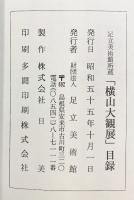 足立美術館所蔵
「横山大観展」目録
発行日 昭和五十五年十月一日
発行者 財団法人 足立美術館
〒692 島根県安来市古川町三二〇
電話(〇八五四二)八-七一一一番
製作 株式会社 日美
印刷 多聞印刷株式会社